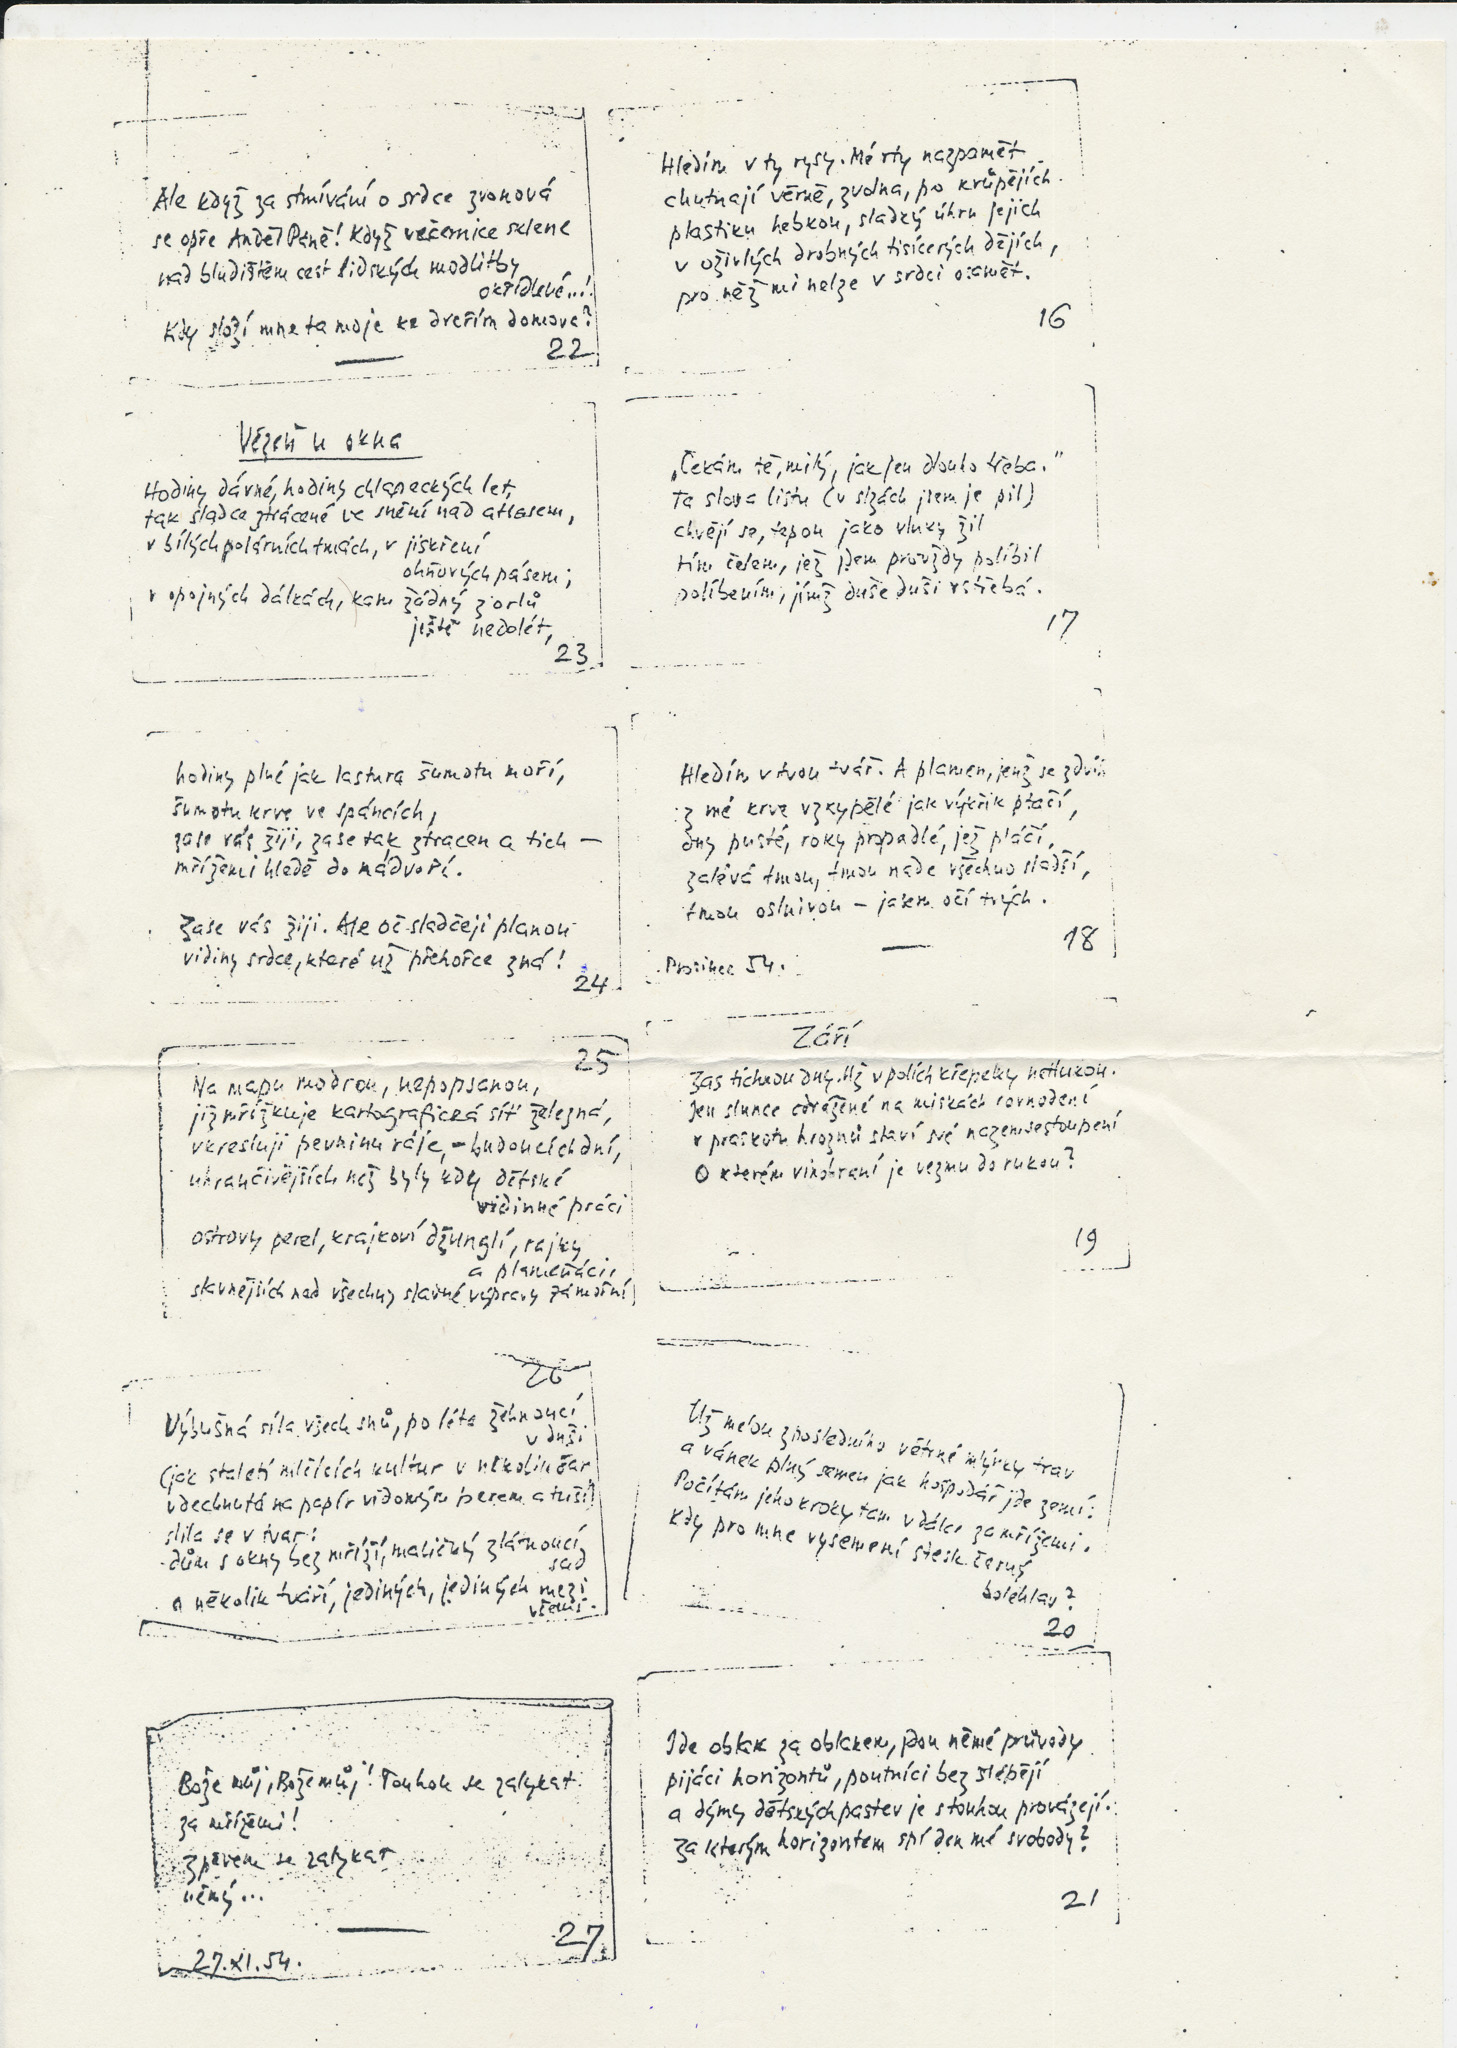 Hledím v ty rysy. Mé rty nazpamět
chutnají věrně, zvolna, po krůpějích
plastiku hebkou, sladký úhrn jejich
v oživlých drobných tisícerých dějích,
pro něž mi nelze v srdci osamět.
16
„Čekám tě, milý, jak jen dlouho třeba."
Ta slova listu (v slzách jsem je pil)
chvějí se, tepou jako vlnky žil
tím čelem, jež jsem provždy políbil
políbením, jímž duše duši vstřebá.
17
Hledím v tvou tvář. A plamen, jenž se zdvih
z mé krve vzkypělé jak výkřik ptačí,
dny pusté, roky propadlé, jež pláčí,
zalévá tmou, tmou nade všechno sladší,
tmou oslnivou – jasem očí tvých.
18
Prosinec 54.
Září
Zas tichnou dny. Už v polích křepelky netlukou.
Jen slunce odražené na miskách rovnodení
v praskotu hroznů slaví své nazemsestoupení
O kterém vinobraní je vezmu do rukou?
19
Už melou z posledního větrné mlýnky trav
a vánek plný semen jak hospodář jde zemí:
Počítám jeho kroky tam v dálce za mřížemi.
Kdy pro mne vysemení stesk černý
bolehlav?
20
Jde oblak za oblakem, jdou němé průvody
pijáci horizontů, poutníci bez šlépějí
a dýmy dětských pastev je s touhou provázejí.
Za kterým horizontem spí den mé svobody?
21
Ale když za stmívání o srdce zvonová
se opře Anděl Páně! Když večernice sklene
nad bludištěm cest lidských modlitby
okřídlené...!
Kdy složí mne ta moje ke dveřím domova?
22
Vězeň u okna
Hodiny dávné, hodiny chlapeckých let,
tak sladce ztrácené ve snění nad atlasem,
v bílých polárních tmách, v jiskření
ohňových pásem;
v opojných dálkách, kam žádný z orlů
ještě nedolét,
23
hodiny plné jak lastura šumotu moří,
šumotu krve ve spáncích,
zase vás žiji, zase tak ztracen a tich –
mřížemi hledě do nádvoří.
Zase vás žiji. Ale oč sladčeji planou
vidiny srdce, které už přehořce zná!
24
25
Na mapu modrou, nepopsanou,
již mřížkuje kartografická síť železná,
vkresluji pevninu ráje, – budoucích dní,
uhrančivějších než byly kdy dětské
vidinné práci
ostrovy perel, krajkoví džunglí, rajky
a plameňáci,
slavnějších nad všechny slavné výpravy zámořní
26
Výbušná síla všech snů, po léta žehnoucí
v duši
(jak staletí mlčících kultur v několik čar
vdechnutá na papír vidomým perem a tuší)
slila se v tvar:
dům s okny bez mříží, maličký zlátnoucí
sad
a několik tváří, jediných, jediných mezi
všemi.
Bože můj, Bože můj! Touhou se zalykat
za mřížemi!
Zpěvem se zalykat
němý...
27
27.XI.54.